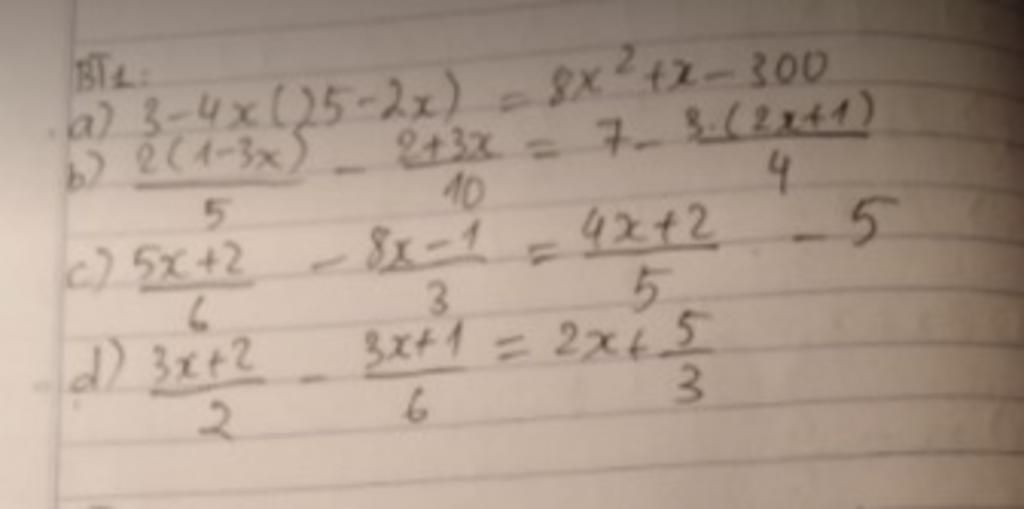 BT1:
a) 3-4x(25-2x) = 8x²+x-300
b) 2(1-3x)/5 - 2+3x/10 = 7- 3.(2x+1)/4
c) 5x+2/6 - 8x-1/3 = 4x+2/5 - 5
d) 3x+2/2 - 3x+1/6 = 2x+ 5/3